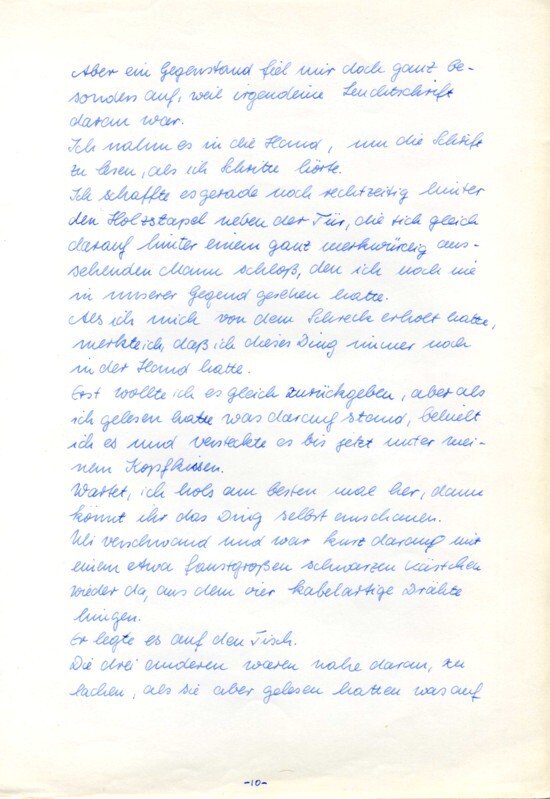 Aber ein Gegenstand fiel mir doch ganz be-
sonders auf, weil irgendeine Leuchtschrift
daran war.
Ich nahm es in die Hand, um die Schrift
zu lesen, als ich Schritte hörte.
Ich schaffte es gerade noch rechtzeitig hinter
den Holzstapel neben der Tür, die sich gleich
darauf hinter einem ganz merkwürdig aus-
sehenden Mann schloß, den ich noch nie
in unserer Gegend gesehen hatte.
Als ich mich von dem Schreck erholt hatte,
merkte ich, daß ich dieses Ding immer noch
in der Hand hatte.
Erst wollte ich es gleich zurückgeben, aber als
ich gelesen hatte was darauf stand, behielt
ich es und versteckte es bis jetzt unter mei-
nem Kopfkissen.
Wartet, ich hols am besten mal her, dann
könnt ihr das Ding selbst anschauen.
Uli verschwand und war kurz darauf mit
einem etwa faustgroßen schwarzen Kästchen
wieder da, aus dem vier kabelartige Drähte
hingen.
Er legte es auf den Tisch.
Die drei anderen waren nahe daran, zu
lachen, als sie aber gelesen hatten was auf
-10-